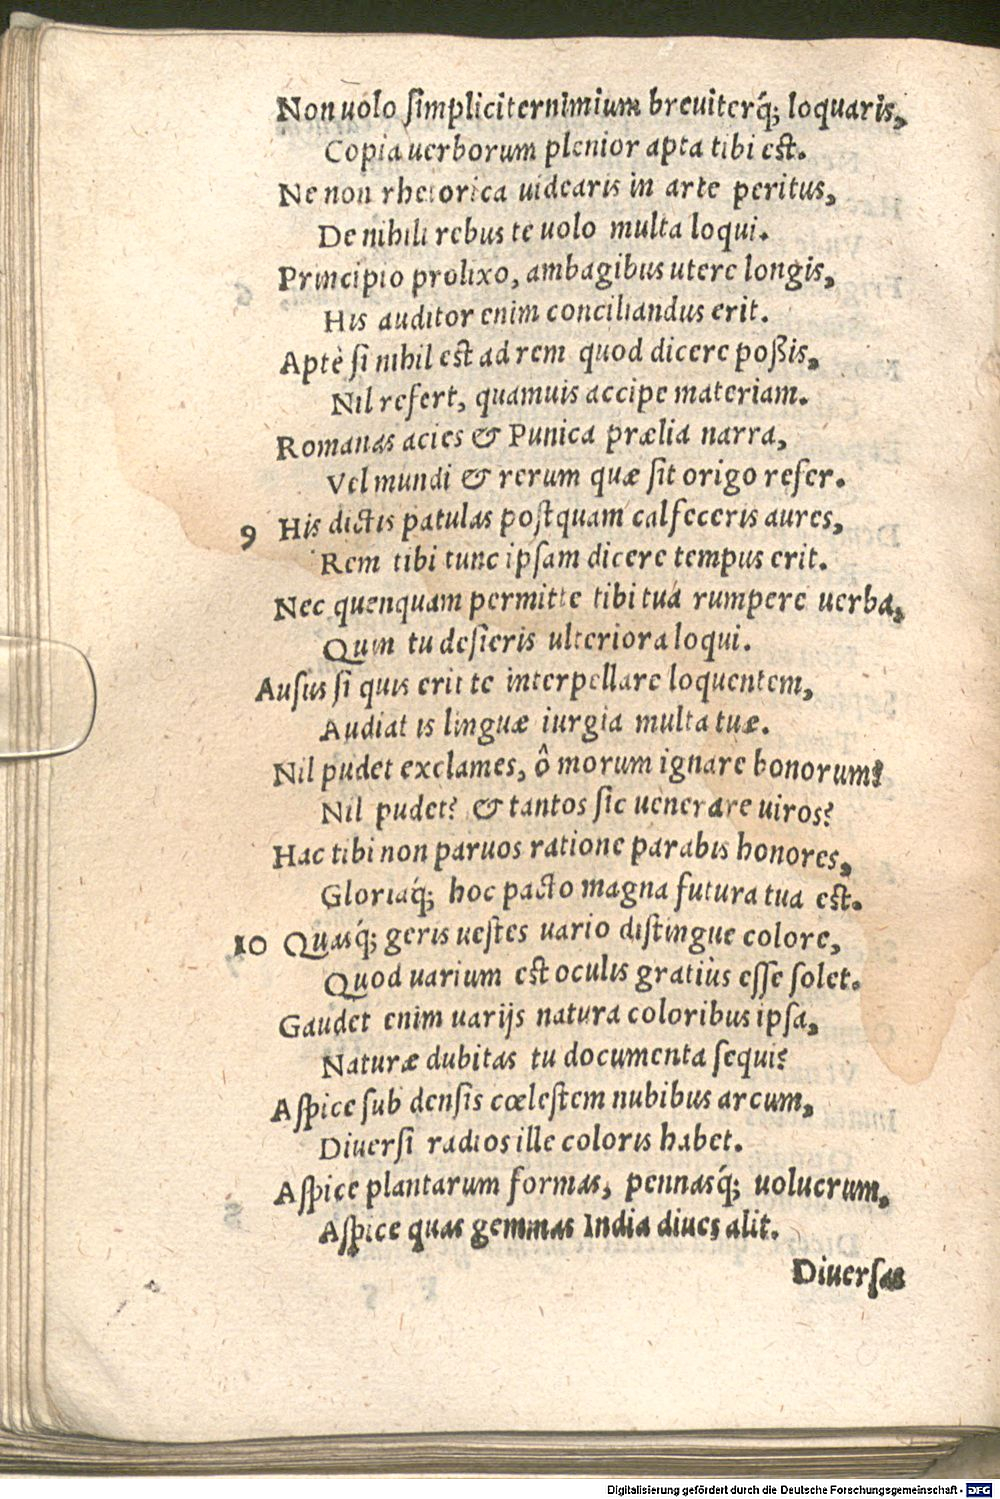 Non uolo ſimpliciter nimium breuiterq́; loquaris,
Copia uerborum plenior apta tibi est.
Ne non rhetorica uidearis in arte peritus,
De nihili rebus te uolo multa loqui.
Principio prolixo, ambagibus utere longis,
His auditor enim conciliandus erit.
Aptè ſi nihil est ad rem quod dicere poßis,
Nil refert, quamuis accipe materiam.
Romanas acies & Punica prælia narra,
Vel mundi & rerum quæ ſit origo refer.
9 His dictis patulas poſtquam calfeceris aures,
Rem tibi tunc ipſam dicere tempus erit.
Nec quenquam permitte tibi tua rumpere uerba,
Quin tu deſieris ulteriora loqui.
Auſus ſi quis erit te interpellare loquentem,
Audiat is linguæ iurgia multa tuæ.
Nil pudet exclames, ô morum ignare bonorum?
Nil pudet? & tantos ſic uenerare uiros?
Hac tibi non paruos ratione parabis honores,
Gloriaq́; hoc pacto magna futura tua est.
10 Quasq́; geris ueſtes uario diſtingue colore,
Quod uarium est oculis gratiùs eſſe ſolet.
Gaudet enim uarijs natura coloribus ipſa,
Naturæ dubitas tu documenta ſequi?
Aſpice ſub denſis cœleſtem nubibus arcum,
Diuerſi radios ille coloris habet.
Aſpice plantarum formas, pennasq́; uolucrum,
Aſpice quas gemmas India diues alit.
Diuerſas
Digitalisierung gefördert durch die Deutsche Forschungsgemeinschaft - DFG